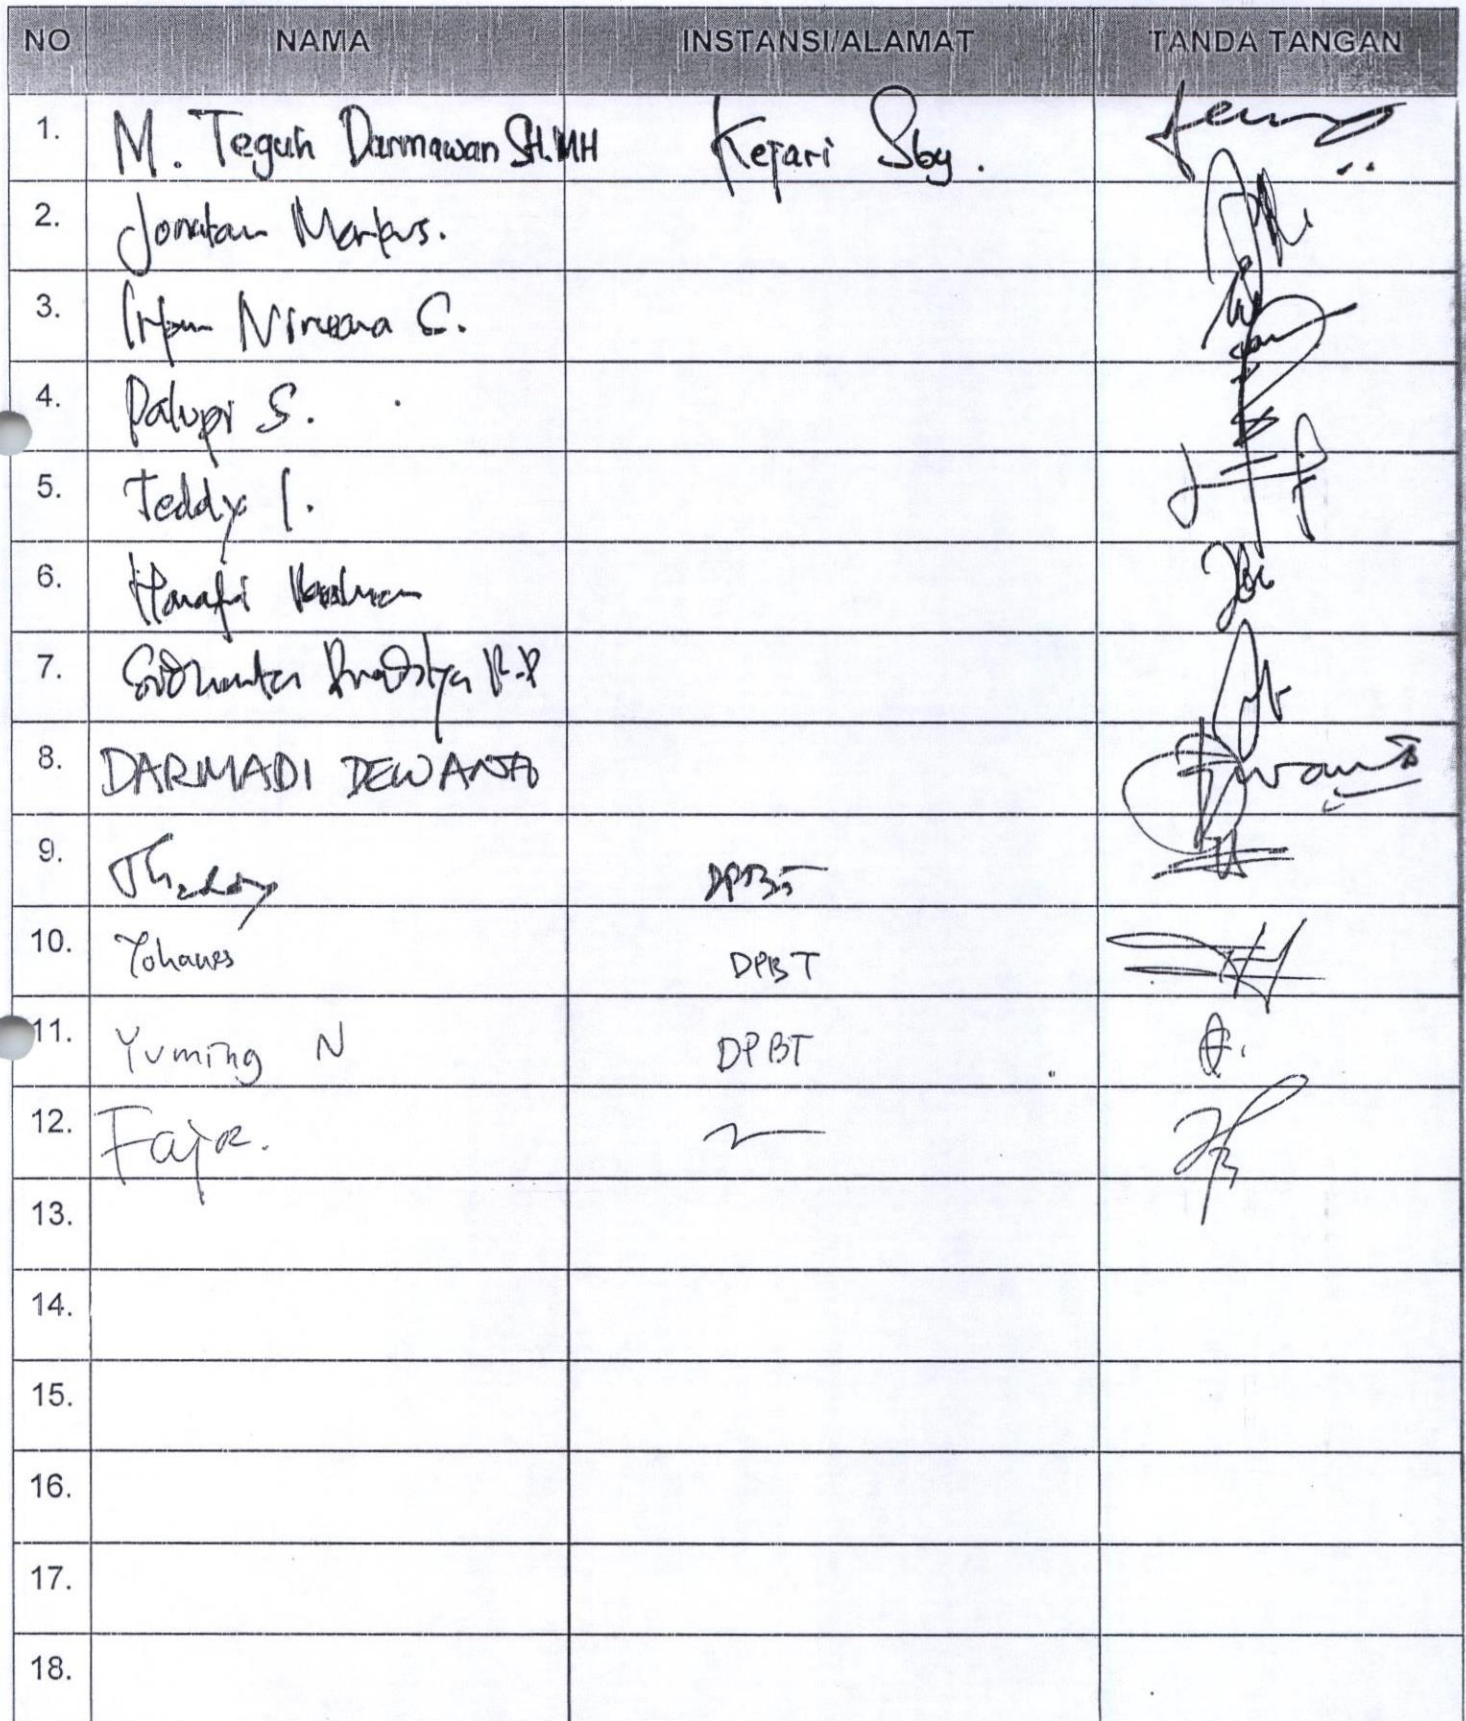 NO NAMA INSTANSI/ALAMAT TANDA TANGAN
1. M. Teguh Darmawan SH.MH Kejari Sby.
2. Jonatan Markus.
3. Nirwana C.
4. Palupi S.
5. Teddy I.
6. Hanafi
7.
8. DARMADI DEWANTO
9.
10. Yohanes DPBT
11. Yuming N DPBT
12. Fajar.
13.
14.
15.
16.
17.
18.